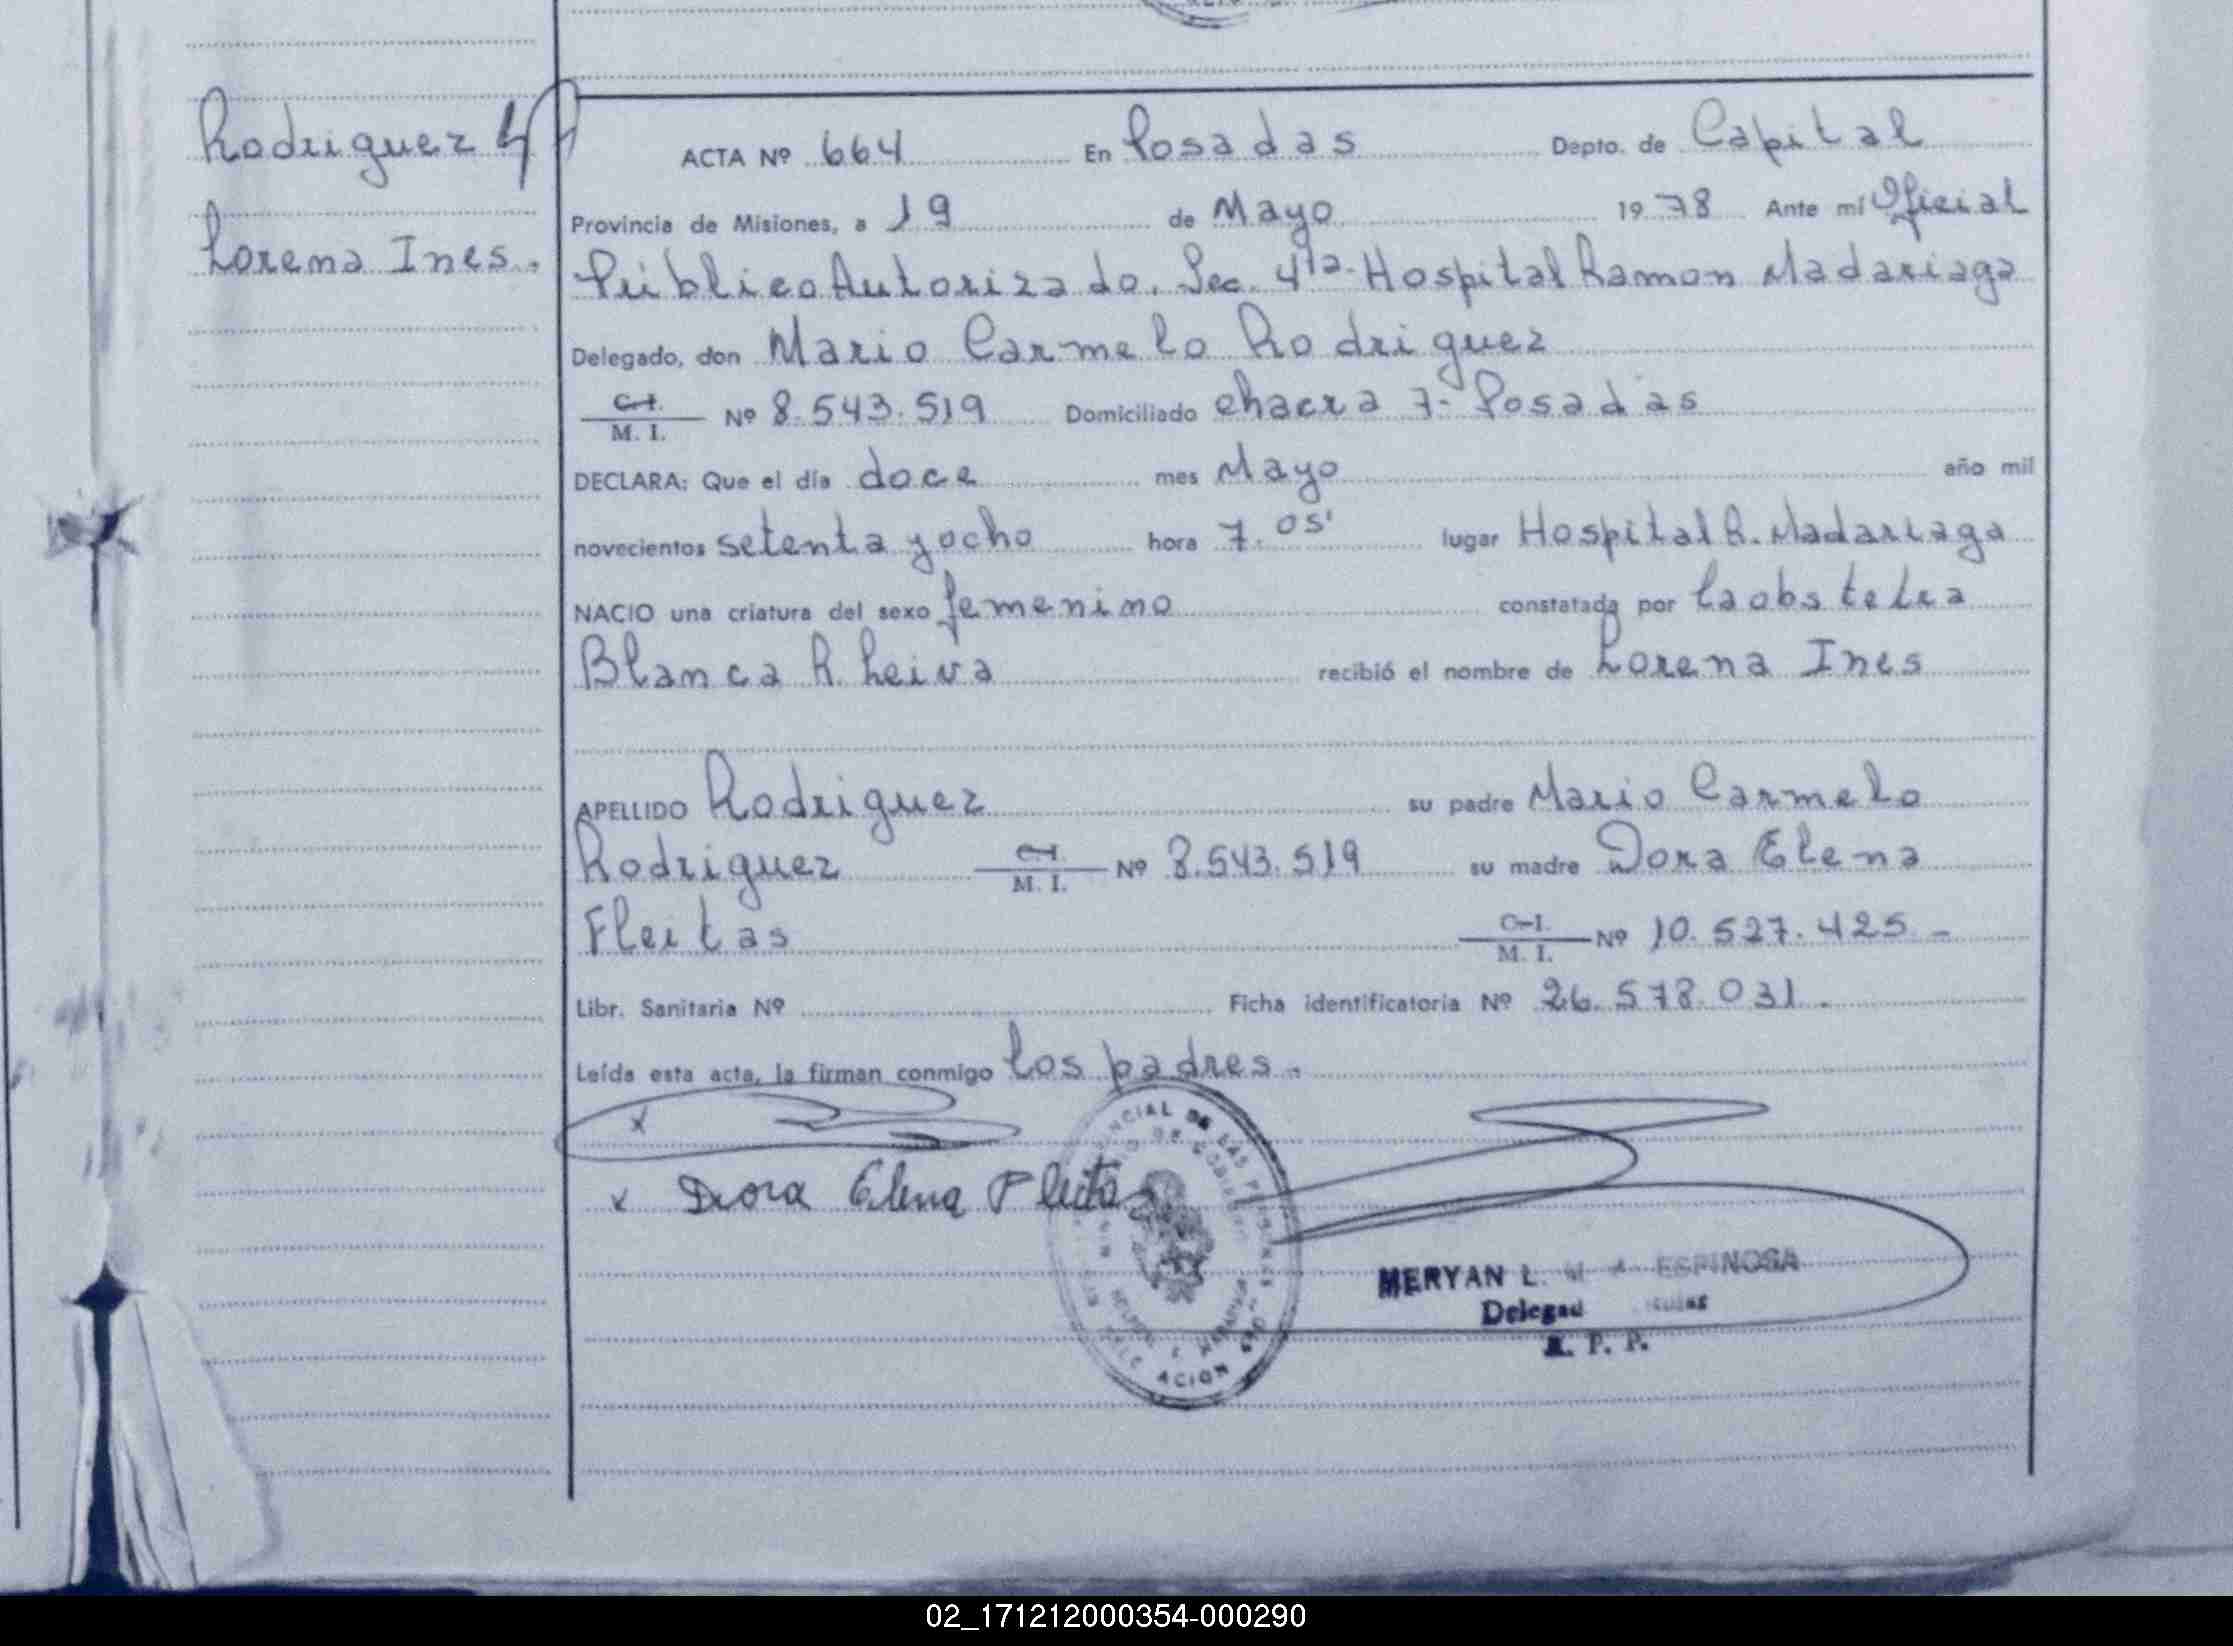 Rodriguez
Lorena Ines.
ACTA Nº 664 En Posadas Depto. de Capital
Provincia de Misiones, a 19 de Mayo 1978 Ante mí Oficial
Público Autorizado. Sec. 4ta. Hospital Ramon Madariaga
Delegado, don Mario Carmelo Rodriguez
C.I.
M. I. Nº 8.543.519 Domiciliado chacra 7- Posadas
DECLARA: Que el día doce mes Mayo año mil
novecientos setenta y ocho hora 7.05' lugar Hospital R. Madariaga
NACIO una criatura del sexo femenino constatada por la obstetra
Blanca R. Leiva recibió el nombre de Lorena Ines
APELLIDO Rodriguez su padre Mario Carmelo
Rodriguez C.I. M. I. Nº 8.543.519 su madre Dora Elena
Fleitas C.I. M. I. Nº 10.527.425-
Libr. Sanitaria Nº Ficha identificatoria Nº 26.578.031.
Leída esta acta, la firman conmigo los padres.-
x
x Dora Elena Fleitas
CIAL DE LAS PE
MERYAN L. ESPINOSA
Delegad
R. P. P.
02_171212000354-000290